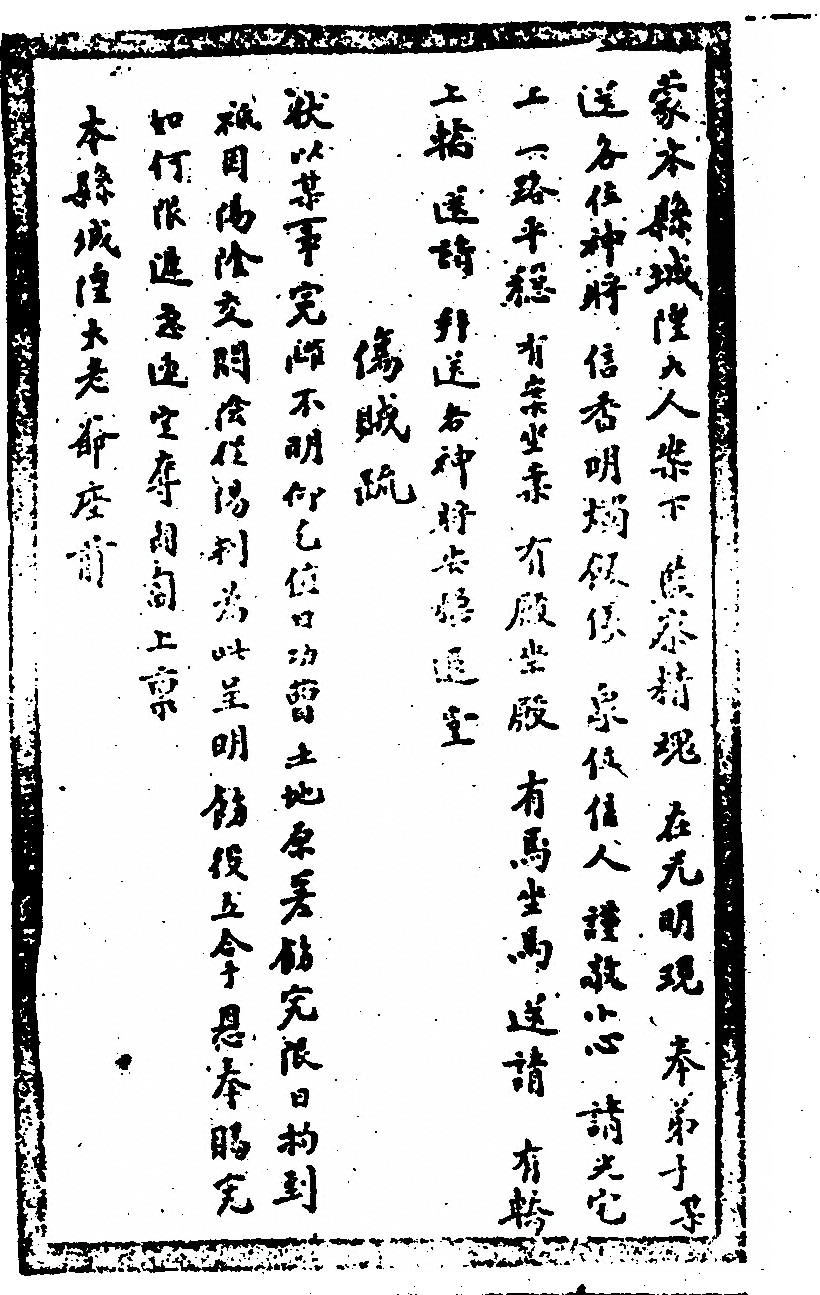 蒙本縣城隍大人案下 監察精魂 在光明現 奉弟子某
送各位神將 信香明燭銀俵 眾使信人 謹敬小心 請光它
上一路平穩 有案坐案 有殿坐殿 有馬坐馬 送請 有轎
上轎 送請 拜送各神將去歸退堂
傷賊疏
狀以某事完雖不明仰乞值日功曹土地原差飭完限日拘到
衹因陽陰交關陰從陽判為此呈明 飭役立拿恩奉賜完
如何限進急速定奪匍匐上稟
本縣城隍大老爺座前